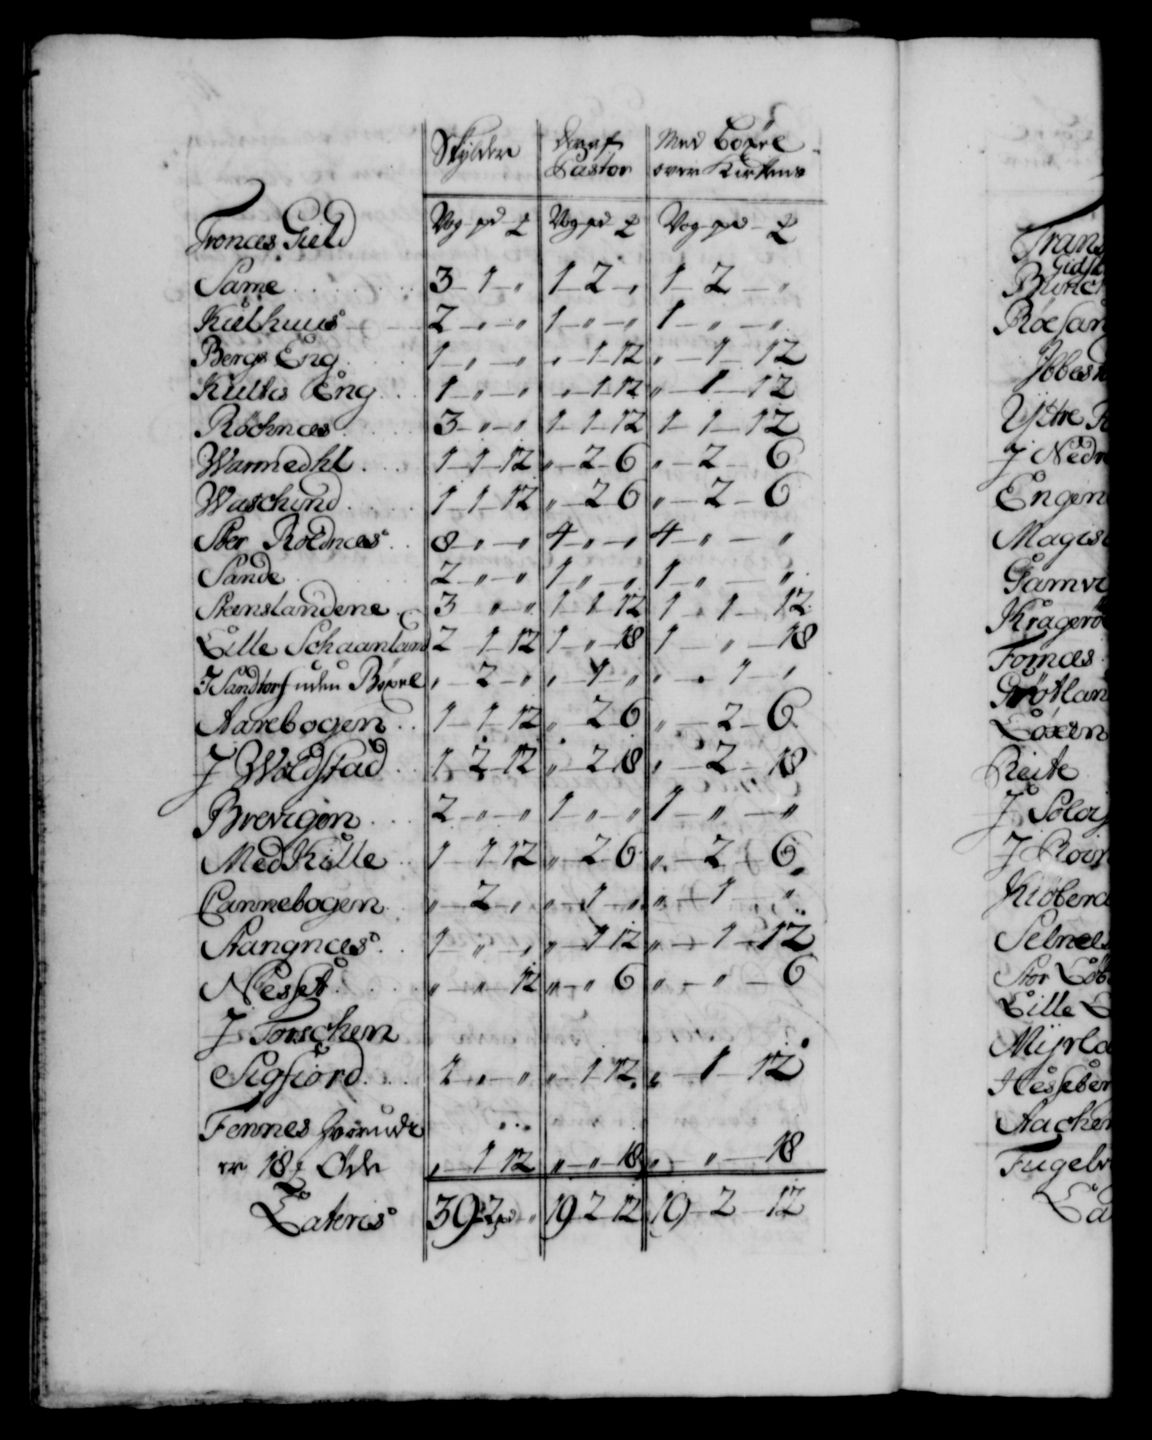 Skylder | deraf Pastor | Med Böxel over Kirkens
Tronæs Gield | Vog pd £ | Vog pd £ | Vog pd £
Same 3 - 1 - " | 1 - 2 - " | 1 - 2 - "
Kielhuus 2 - " - " | 1 - " - " | 1 - " - "
Bergs Eng 1 - " - " | " - 1 - 12 | " - 1 - 12
Kulsæs Eng 1 - " - " | " - 1 - 12 | " - 1 - 12
Röcknæs 3 - " - " | 1 - 1 - 12 | 1 - 1 - 12
Warmedhl 1 - 1 - 12 | " - 2 - 6 | " - 2 - 6
Waschind 1 - 1 - 12 | " - 2 - 6 | " - 2 - 6
Stor Roldnæs 8 - " - " | 4 - " - " | 4 - " - "
Sande 2 - " - " | 1 - " - " | 1 - " - "
Stenslandene 3 - " - " | 1 - 1 - 12 | 1 - 1 - 12
Lille Schaanland 2 - 1 - 12 | 1 - " - 18 | 1 - " - 18
J Sandtorf uden Böxel " - 2 - " | " - 1 - " | " - 1 - "
Aarebogen 1 - 1 - 12 | " - 2 - 6 | " - 2 - 6
J Woldstad 1 - 2 - 12 | " - 2 - 18 | " - 2 - 18
Brevigen 2 - " - " | 1 - " - " | 1 - " - "
MedKille 1 - 1 - 12 | " - 2 - 6 | " - 2 - 6
Cannebogen " - 2 - " | " - 1 - " | " - 1 - "
Stangnæs 1 - " - " | " - 1 - 12 | " - 1 - 12
Nesset " - " - 12 | " - " - 6 | " - " - 6
J Torschen
Sigfiord 1 - " - " | " - 1 - 12 | " - 1 - 12
Fennes hvorudi
er 18 £ Öde " - 1 - 12 | " - " - 18 | " - " - 18
Lateris 39 - 2 pd - " | 19 - 2 - 12 | 19 - 2 - 12
Trans
Röesan
Ibbest
Yttre R
J Nedr
Engen
Magis
Gamve
Kragerö
Fornæs
Grötlan
Loxen
Reite
J Solø
J Roin
Kiöbera
Selnes
Stor Löb
Lille L
Myrla
Hesseber
Aacher
Fugelv
La